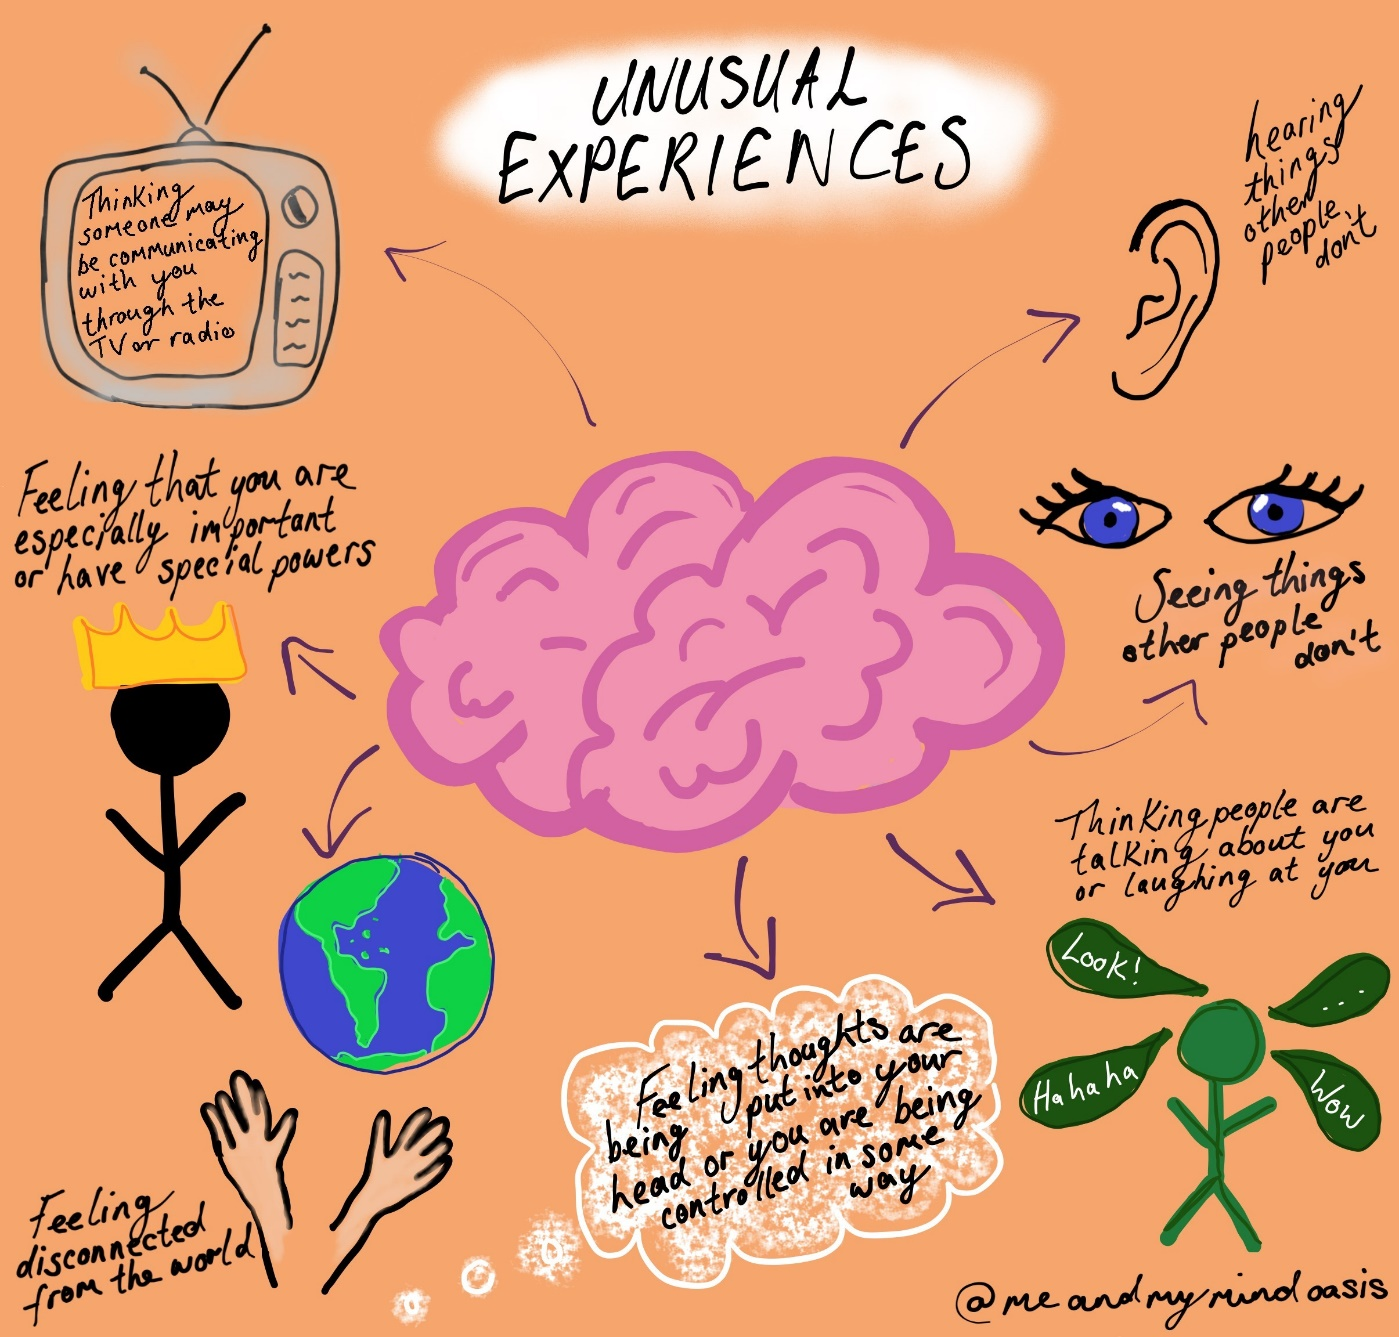 UNUSUAL
EXPERIENCES
Thinking
someone may
be communicating
with you
through the
TV or radio
hearing
things
other
people
don't
Feeling that you are
especially important
or have special powers
Seeing things
other people
don't
Thinking people are
talking about you
or laughing at you
Look!
...
Hahaha
Wow
Feeling thoughts are
being put into your
head or you are being
controlled in some
way
Feeling
disconnected
from the world
@meandmymindoasis